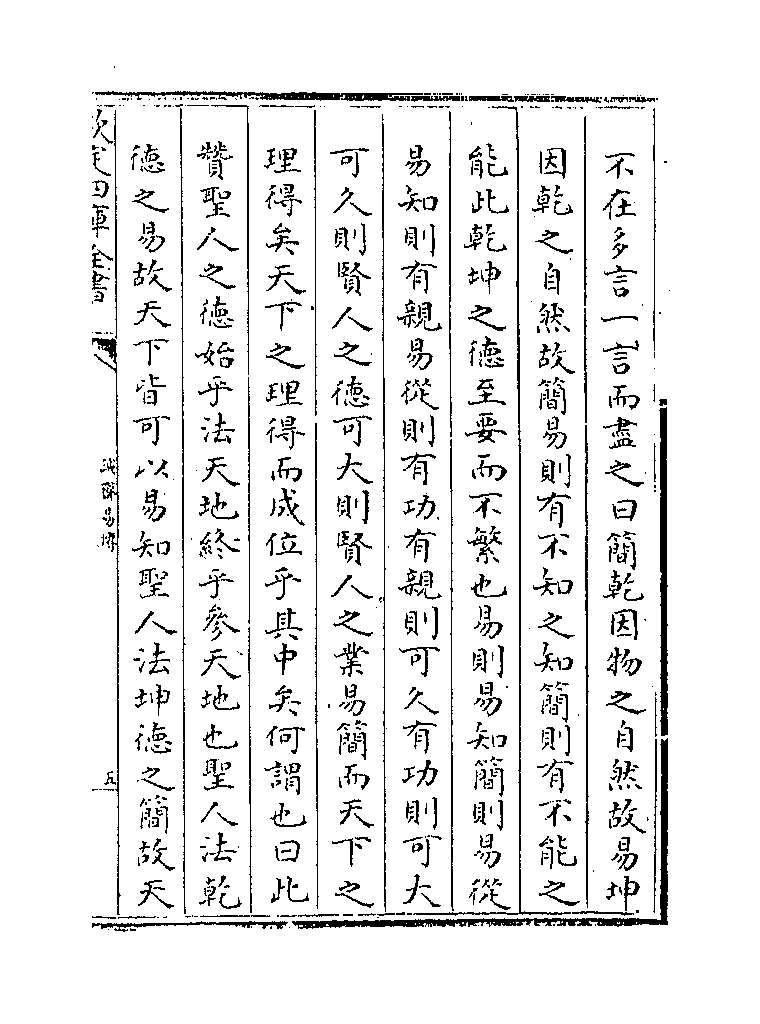 不在多言一言而盡之曰簡乾因物之自然故易坤
因乾之自然故簡易則有不知之知簡則有不能之
能此乾坤之德至要而不繁也易則易知簡則易從
易知則有親易從則有功有親則可久有功則可大
可久則賢人之德可大則賢人之業易簡而天下之
理得矣天下之理得而成位乎其中矣何謂也曰此
贊聖人之德始乎法天地終乎參天地也聖人法乾
德之易故天下皆可以易知聖人法坤德之簡故天
欽定四庫全書
誠齋易傳
五